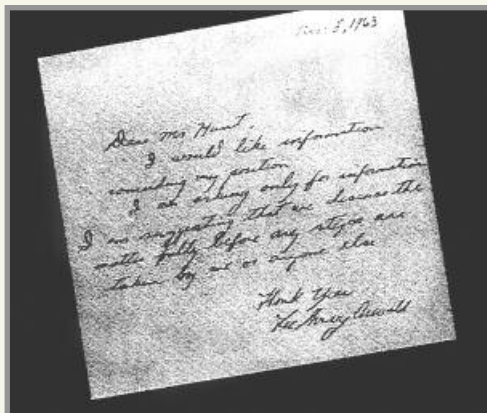 Nov. 8, 1963
Dear Mr. Hunt,
I would like information
concerding my position.
I am asking only for information
I am suggesting that we discuss the
matter fully before any steps are
taken by me or anyone else
Thank You
Lee Harvey Oswald